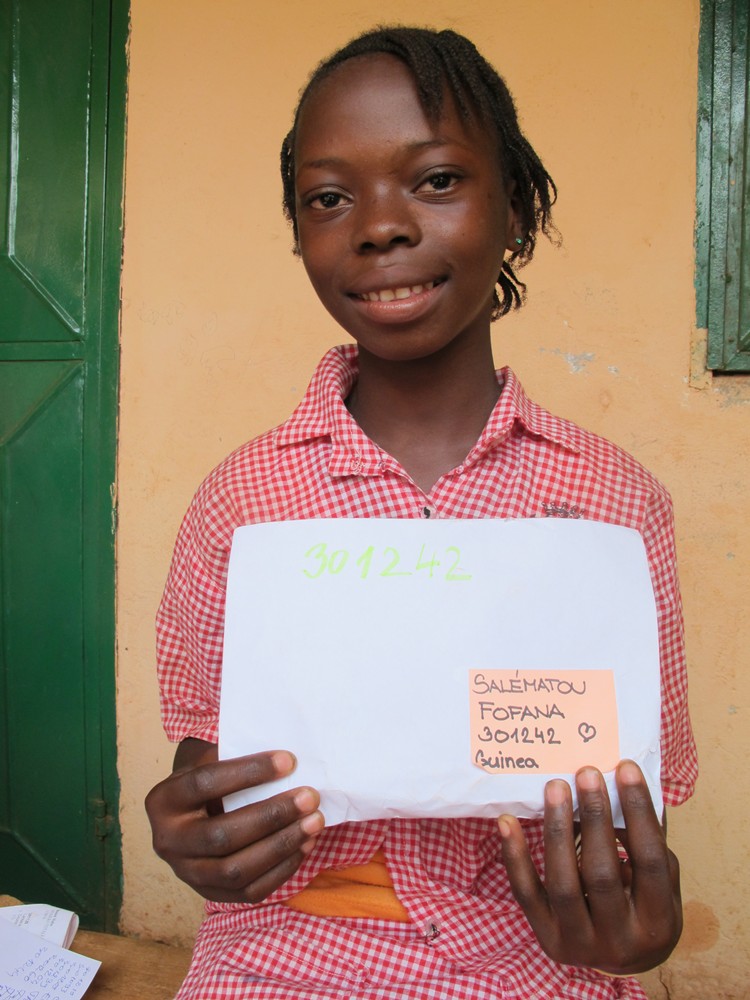 301242
SALÉMATOU
FOFANA
301242 ♡
Guinea